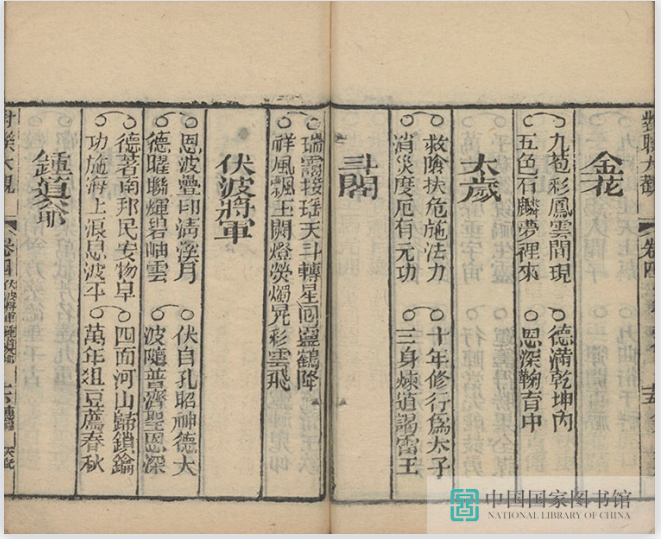 對聯大觀
卷四
金花
九苞彩鳳雲間現 德滿乾坤內
五色石麟夢裡來 恩深鞠育中
太歲
救險扶危施法力 十年修行爲太子
消災度厄有元功 三身煉道謁雷王
斗閣
瑞靄接瑤天斗轉星回靈鶴降
祥風飄玉闕燈熒燭晃彩雲飛
伏波將軍
恩波疊印清溪月 伏自孔昭神德大
德曜聯輝岩岫雲 波隨普濟聖恩深
德著南邦民安物阜 四面河山歸鎖鑰
功施海上浪息波平 萬年俎豆薦春秋
鍾道爺
對聯大觀
卷四
中国国家图书馆
NATIONAL LIBRARY OF CHINA